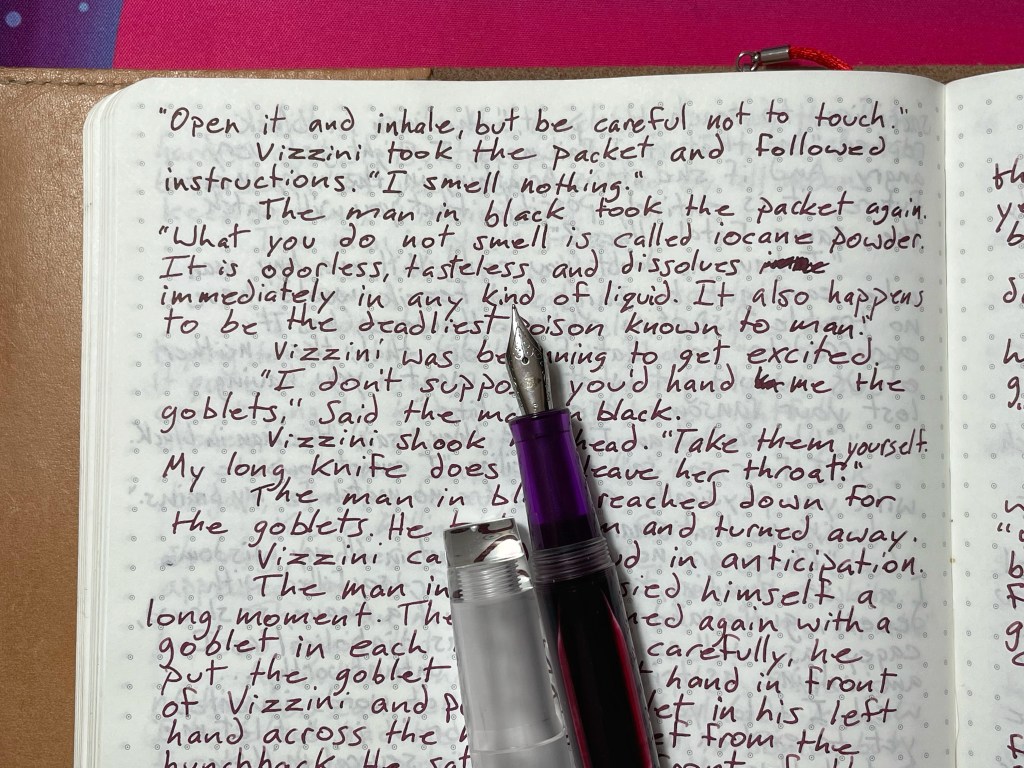 "Open it and inhale, but be careful not to touch."
Vizzini took the packet and followed
instructions. "I smell nothing."
The man in black took the packet again.
"What you do not smell is called iocane powder.
It is odorless, tasteless, and dissolves
immediately in any kind of liquid. It also happens
to be the deadliest poison known to man."
Vizzini was be ning to get excited
"I don't suppo you'd hand me the
goblets," said the ma n black.
Vizzini shook head. "Take them yourself.
My long knife does leave her throat."
The man in bl reached down for
the goblets. He and turned away.
Vizzini ca in anticipation.
The man in sied himself a
long moment. The ned again with a
goblet in each carefully, he
put the goblet hand in front
of Vizzini and p let in his left
hand across the from the
hunchback. He sat